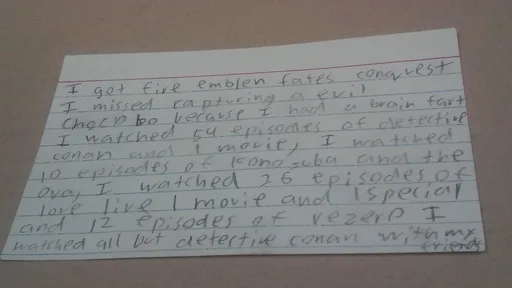 I got fire emblen fates conquest
I missed capturing a evil
chocobo because I had a brain fart
I watched 54 episodes of detective
conan and 1 movie, I watched
10 episodes of Konosuba and the
ova, I watched 26 episodes of
love live 1 movie and 1 special
and 12 episodes of rezero I
watched all but detective conan with my
friends